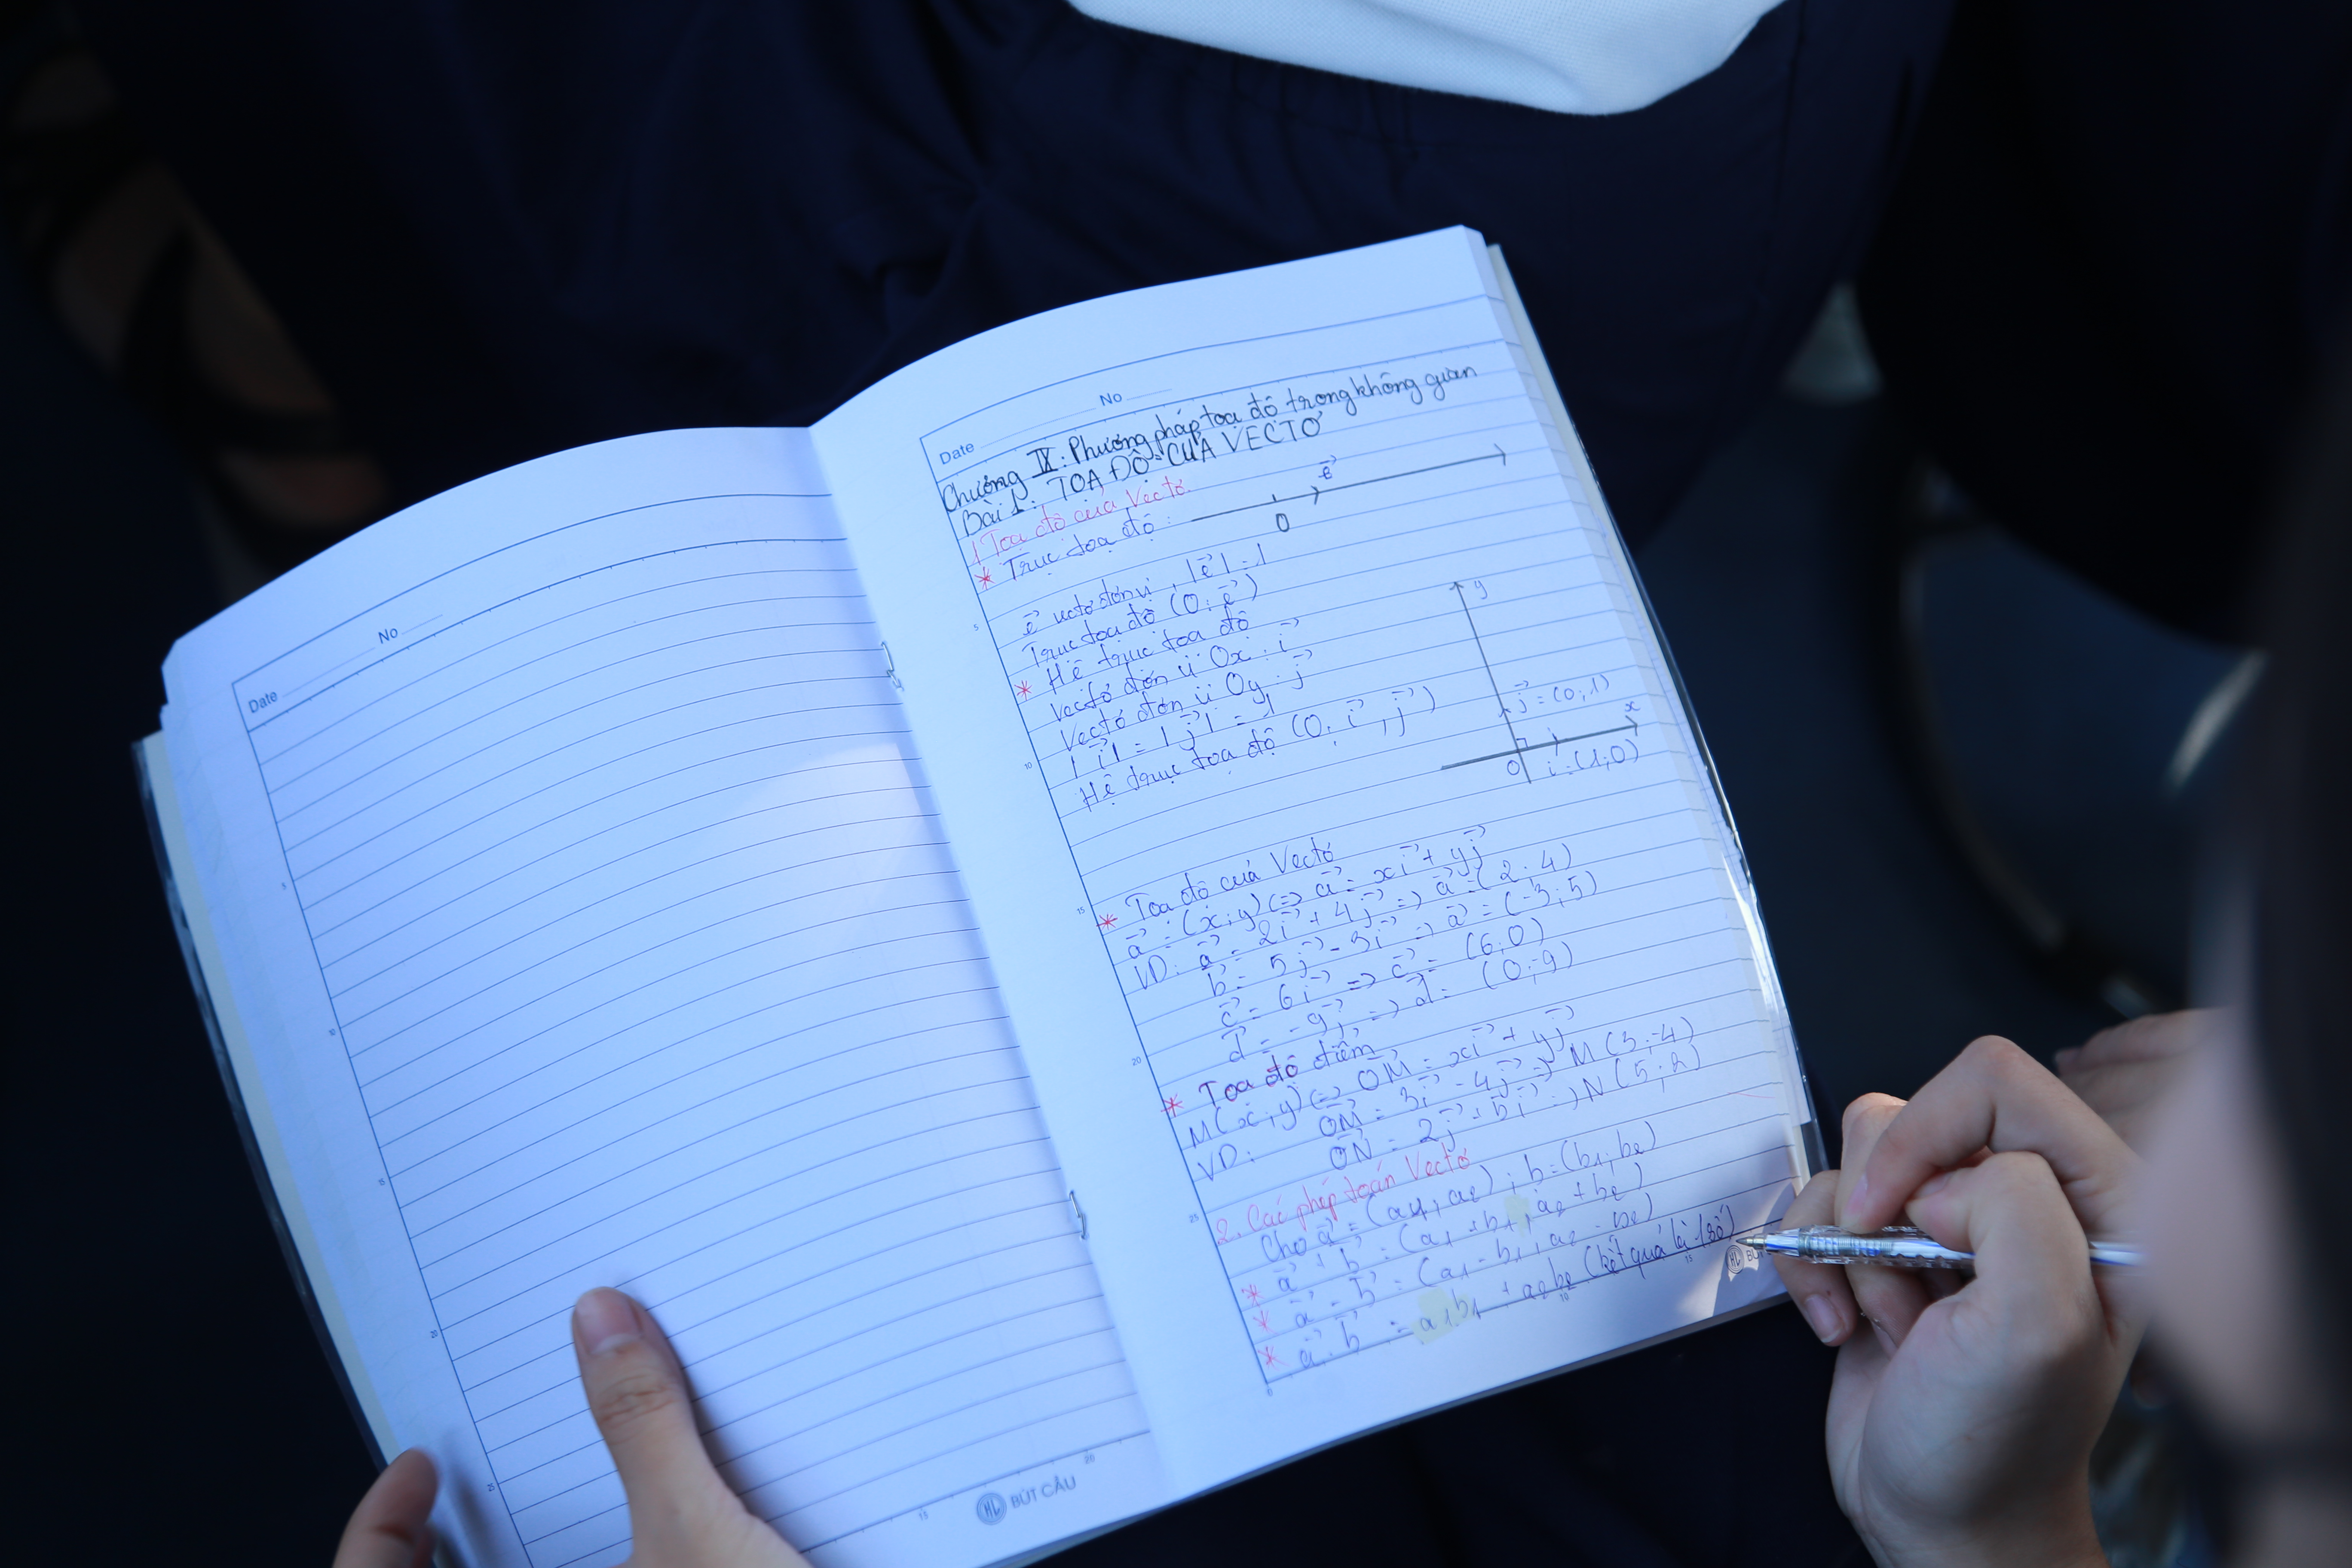 Date No
Date No
Chương IX: Phương pháp tọa độ trong không gian
Bài 1: TỌA ĐỘ CỦA VECTƠ
1 Tọa độ của Vectơ
* Trục tọa độ:
e⃗
O
e⃗ vectơ đơn vị, |e⃗| = 1
Trục tọa độ (O; e⃗)
* Hệ trục tọa độ
Vectơ đơn vị Ox: i⃗
Vectơ đơn vị Oy: j⃗
|i⃗| = |j⃗| = 1
Hệ trục tọa độ (O; i⃗, j⃗)
y
j⃗ = (0;1)
x
O i = (1;0)
* Tọa độ của Vectơ
a⃗ = (x;y) <=> a⃗ = xi⃗ + yj⃗
VD: a⃗ = 2i⃗ + 4j⃗ => a⃗ = (2;4)
b⃗ = 5j⃗ - 3i⃗ => a⃗ = (-3;5)
c⃗ = 6i⃗ => c⃗ = (6;0)
d⃗ = -9j⃗ => d⃗ = (0;-9)
* Tọa độ điểm
M(x;y) <=> OM⃗ = xi⃗ + yj⃗
VD: OM⃗ = 3i⃗ - 4j⃗ => M(3;-4)
ON⃗ = 2j⃗ + 5i⃗ => N(5;2)
2. Các phép toán Vectơ
Cho a⃗ = (a1; a2); b = (b1; b2)
* a⃗ + b⃗ = (a1 + b1; a2 + b2)
* a⃗ - b⃗ = (a1 - b1; a2 - b2)
* a⃗ . b⃗ = a1b1 + a2b2 (kết quả là 1 số)
5
10
15
20
25
5
10
15
20
25
0
10
15
15
20
BÚT CÂU